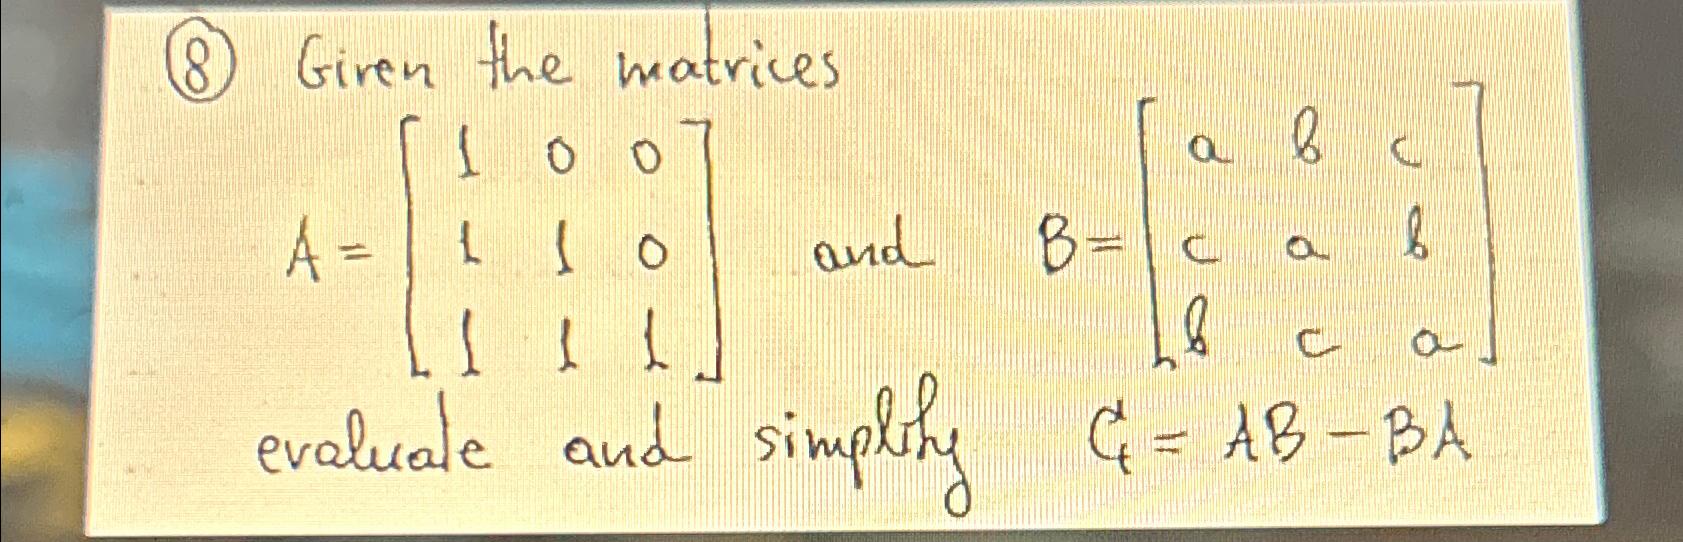 ⑧ Given the matrices
A = [ 1 0 0
1 1 0
1 1 1 ] and B = [ a b c
c a b
b c a ]
evaluate and simplify C = AB - BA